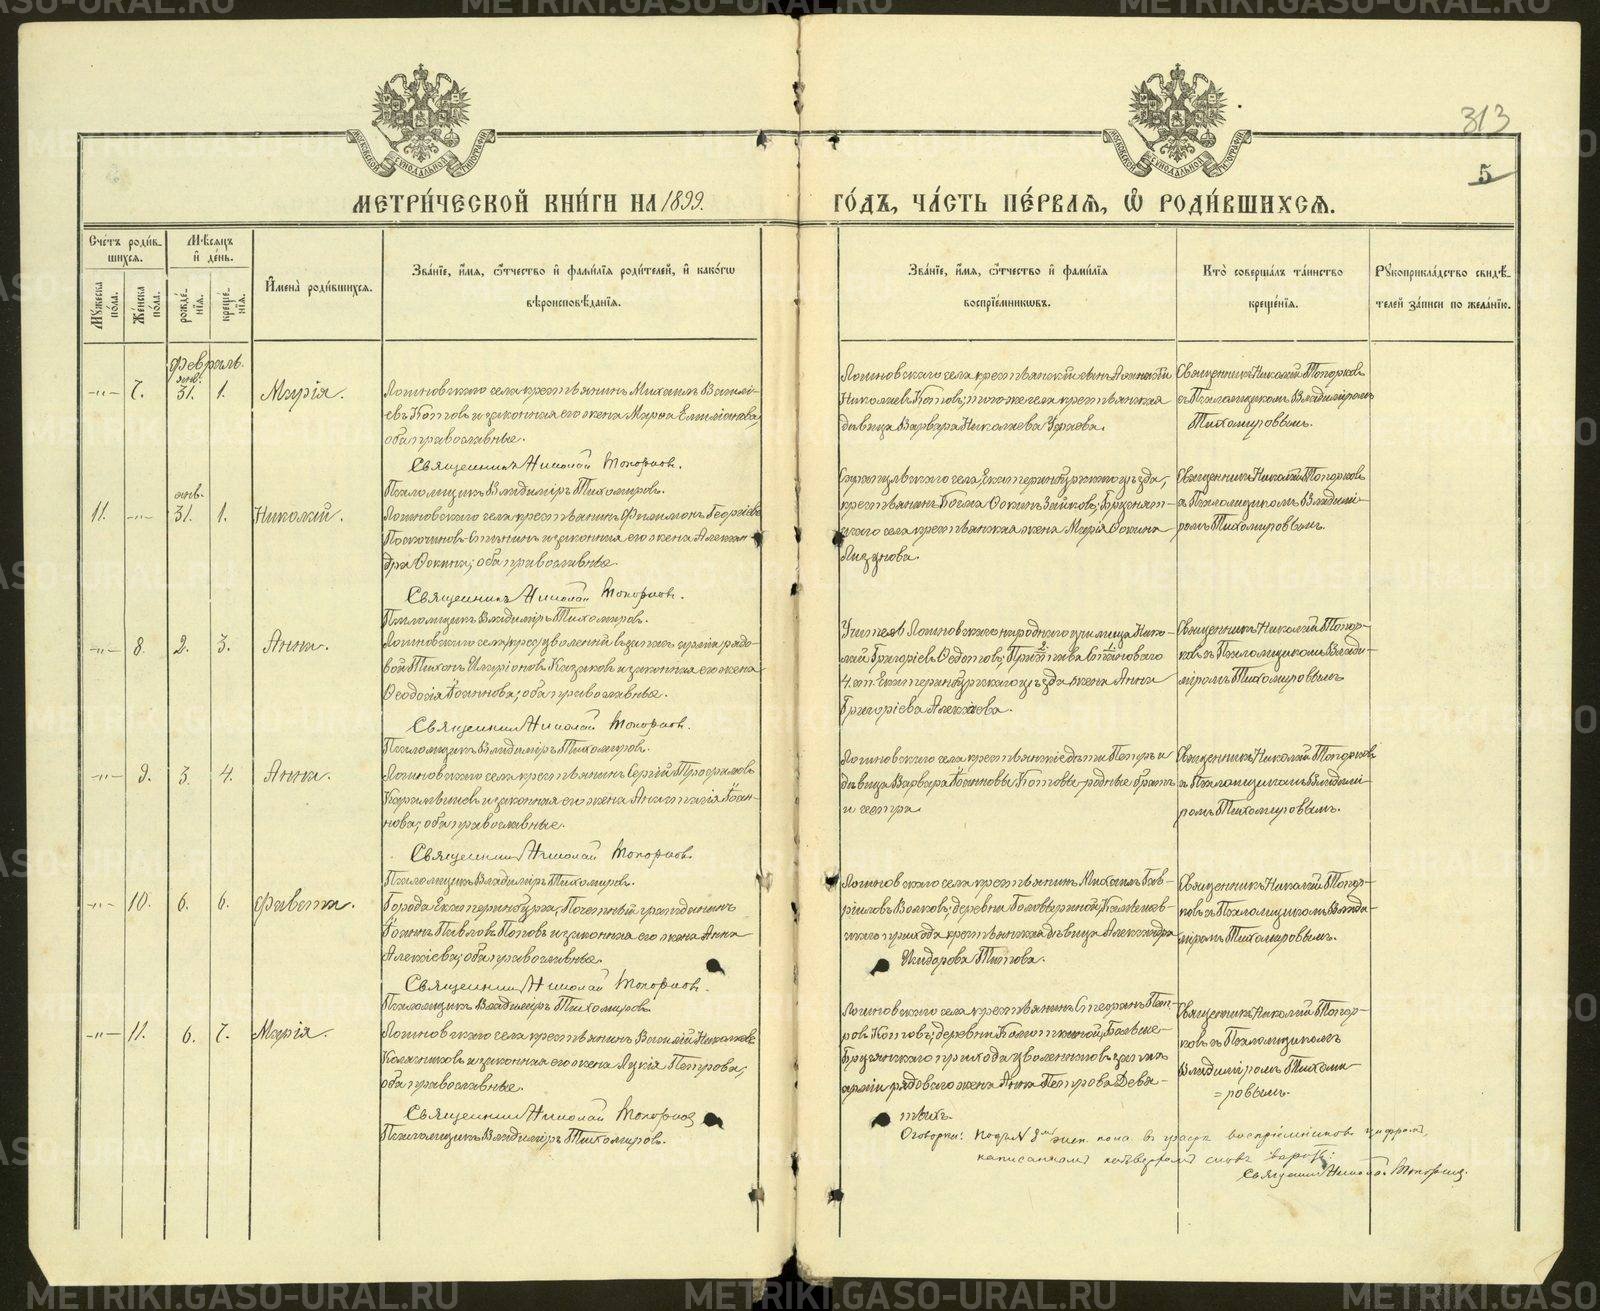 313
5
МЕТРИ́ЧЕСКОЙ КНИ́ГИ НА 1899.
ГО́ДЪ, ЧА́СТЬ ПЕ́РВАѦ, Ѡ҆ РОДИ́ВШИХСѦ.
Сче́тъ роди́в-
шихсѧ.
Мѣ́сѧцъ
и҆ де́нь.
Мꙋ́жеска
по́ла.
Же́нска
по́ла.
рожде́-
нїѧ.
креще́-
нїѧ.
И҆мена̀ роди́вшихсѧ.
Зва́нїе, и҆́мѧ, ѻ҆́тчество и҆ фами́лїѧ роди́телей, и҆ како́гѡ
вѣроисповѣ́данїѧ.
Зва́нїе, и҆́мѧ, ѻ҆́тчество и҆ фами́лїѧ
воспрїе́мникѡвъ.
Кто̀ соверша́лъ та́инство
креще́нїѧ.
Рꙋкоприкла́дство свидѣ́-
телей за́писи по жела́нїю.
Февраль.
янв.
-„- 7. 31. 1. Марія.
Логиновскаго села крестьянинъ Михаилъ Василі-
евъ Котовъ и законная его жена Марѳа Емиліанова,
оба православные.
Священникъ Николай Топорковъ.
Псаломщикъ Владиміръ Тихомировъ.
Логиновскаго села крестьянскій сынъ
Николаевъ Котовъ; того же села крестьянская
дѣвица Варвара Николаева
Священникъ Николай Топорковъ
съ Псаломщикомъ Владиміромъ
Тихомировымъ.
янв.
11. -„- 31. 1. Николай.
Логиновскаго села крестьянинъ Филимонъ Георгіевъ
и законная его жена Алексан-
дра Ѳокина; оба православные.
Священникъ Николай Топорковъ.
Псаломщикъ Владиміръ Тихомировъ.
села, Екатеринбургскаго уѣзда,
крестьянинъ Косма Ѳокинъ Зайковъ;
села крестьянская жена Марія Ѳокина
Священникъ Николай Топорковъ
съ Псаломщикомъ Владимі-
ромъ Тихомировымъ.
-„- 8. 2. 3. Анна.
Логиновскаго села, уволенный въ запасъ арміи рядо-
вой Тихонъ Иларіоновъ Казаковъ и законная его жена
Ѳеодосія Іоаннова; оба православные.
Священникъ Николай Топорковъ.
Псаломщикъ Владиміръ Тихомировъ.
Учитель Логиновскаго народнаго училища Нико-
лай Григоріевъ Ѳедотовъ;
4. ст. Екатеринбургскаго уѣзда жена Анна
Григоріева Алексѣева.
Священникъ Николай Топор-
ковъ съ Псаломщикомъ Влади-
міромъ Тихомировымъ
-„- 9. 3. 4. Анна.
Логиновскаго села крестьянинъ Сергій Трофимовъ
и законная его жена Анастасія Іоан-
нова; оба православные.
Священникъ Николай Топорковъ.
Псаломщикъ Владиміръ Тихомировъ.
Логиновскаго села крестьянскіе дѣти Петръ и
дѣвица Варвара Іоанновы Котовы родные братъ
и сестра.
Священникъ Николай Топорковъ
съ Псаломщикомъ Владимі-
ромъ Тихомировымъ.
-„- 10. 6. 6. Фавста.
Города Екатеринбурга, Почетный гражданинъ
Іоаннъ Павловъ Поповъ и законная его жена Анна
Алексіева; оба православные.
Священникъ Николай Топорковъ.
Псаломщикъ Владиміръ Тихомировъ.
Логиновскаго села крестьянинъ Михаилъ Гав-
ріиловъ Волковъ; деревни Головыриной,
прихода крестьянская дѣвица Александра
Исидорова Титова.
Священникъ Николай Топор-
ковъ съ Псаломщикомъ Влади-
міромъ Тихомировымъ.
-„- 11. 6. 7. Марія.
Логиновскаго села крестьянинъ Василій Николаевъ
и законная его жена Лукія Петрова,
оба православные.
Священникъ Николай Топорковъ
Псаломщикъ Владиміръ Тихомировъ.
Логиновскаго села крестьянинъ Стефанъ Пет-
ровъ Котовъ; деревни
прихода уволеннаго въ запасъ
арміи рядоваго жена Анна Петрова Девя-
тыхъ.
Священникъ Николай Топор-
ковъ съ Псаломщикомъ
Владиміромъ Тихоми-
=ровымъ.
Оговорка: подъ № 8 жен. пола въ графѣ воспріемниковъ
Священникъ Николай Топорковъ.
METRIKI.GASO-URAL.RU